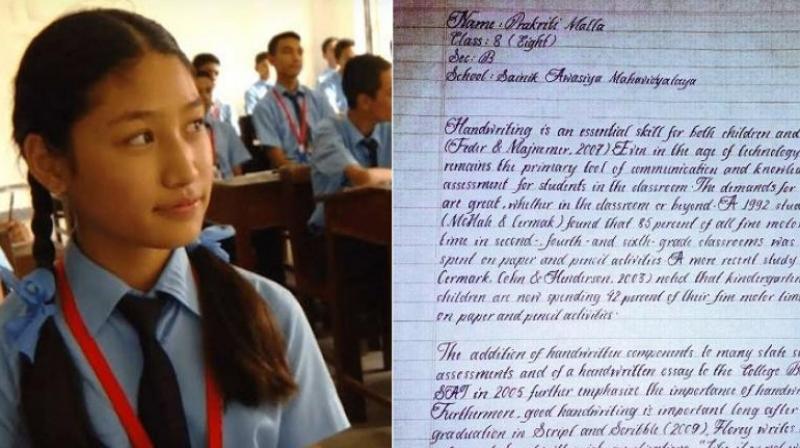 Name : Prakriti Malla
Class : 8 (Eight)
Sec : B
School : Sainik Awasiya Mahavidyalaya
Handwriting is an essential skill for both children and
(Feder & Majnemer, 2007). Even in the age of technology,
remains the primary tool of communication and knowle
assessment for students in the classroom. The demands for
are great, whether in the classroom or beyond. A 1992 stud
(McHale & Cermak) found that 85 percent of all fine motor
time in second-, fourth- and sixth- grade classrooms was
spent on paper and pencil activities. A more recent study
Cermark, Cohn & Henderson, 2003) noted that kindergarten
children are now spending 42 percent of their fine motor time
on paper and pencil activities.
The addition of handwritten components to many state s
assessments and of a handwritten essay to the College B
SAT in 2005 further emphasize the importance of handwri
Furthermore, good handwriting is important long after
graduation. in Script and Scribble (2009), Florey writes